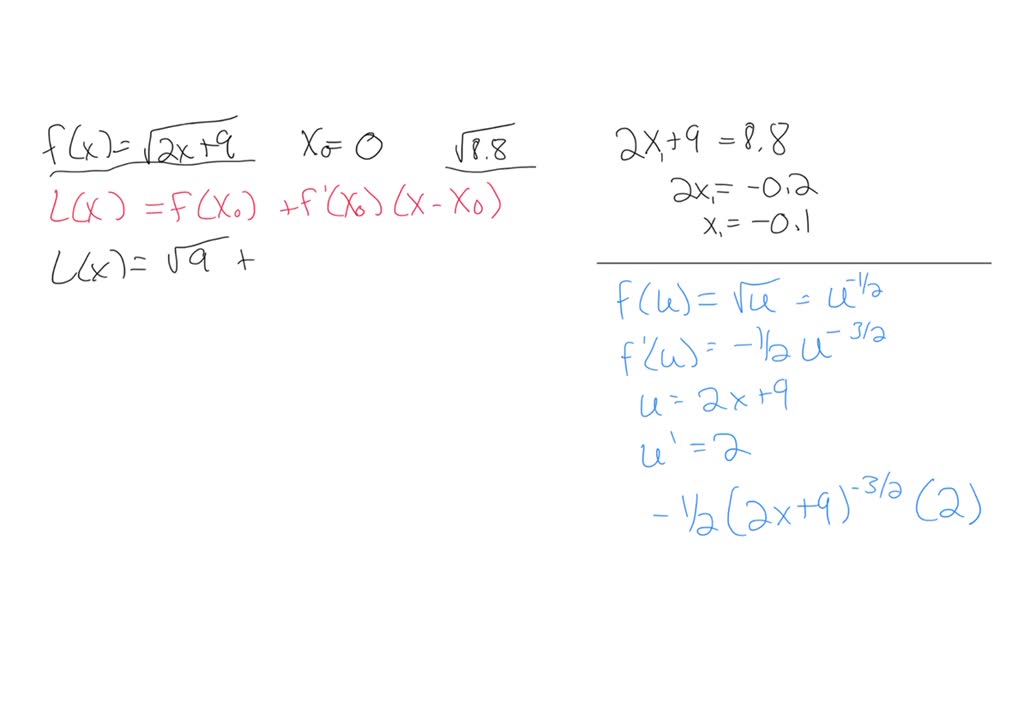 f(x)= √2x+9 x₀= 0 √8.8
L(x) = f(x₀) + f'(x₀) (x - x₀)
L(x)= √9 +
2x₁+9 = 8.8
2x₁= -0.2
x₁= -0.1
f(u) = √u = u^-1/2
f'(u) = -1/2 u^-3/2
u = 2x+9
u' = 2
-1/2 (2x+9)^-3/2 (2)